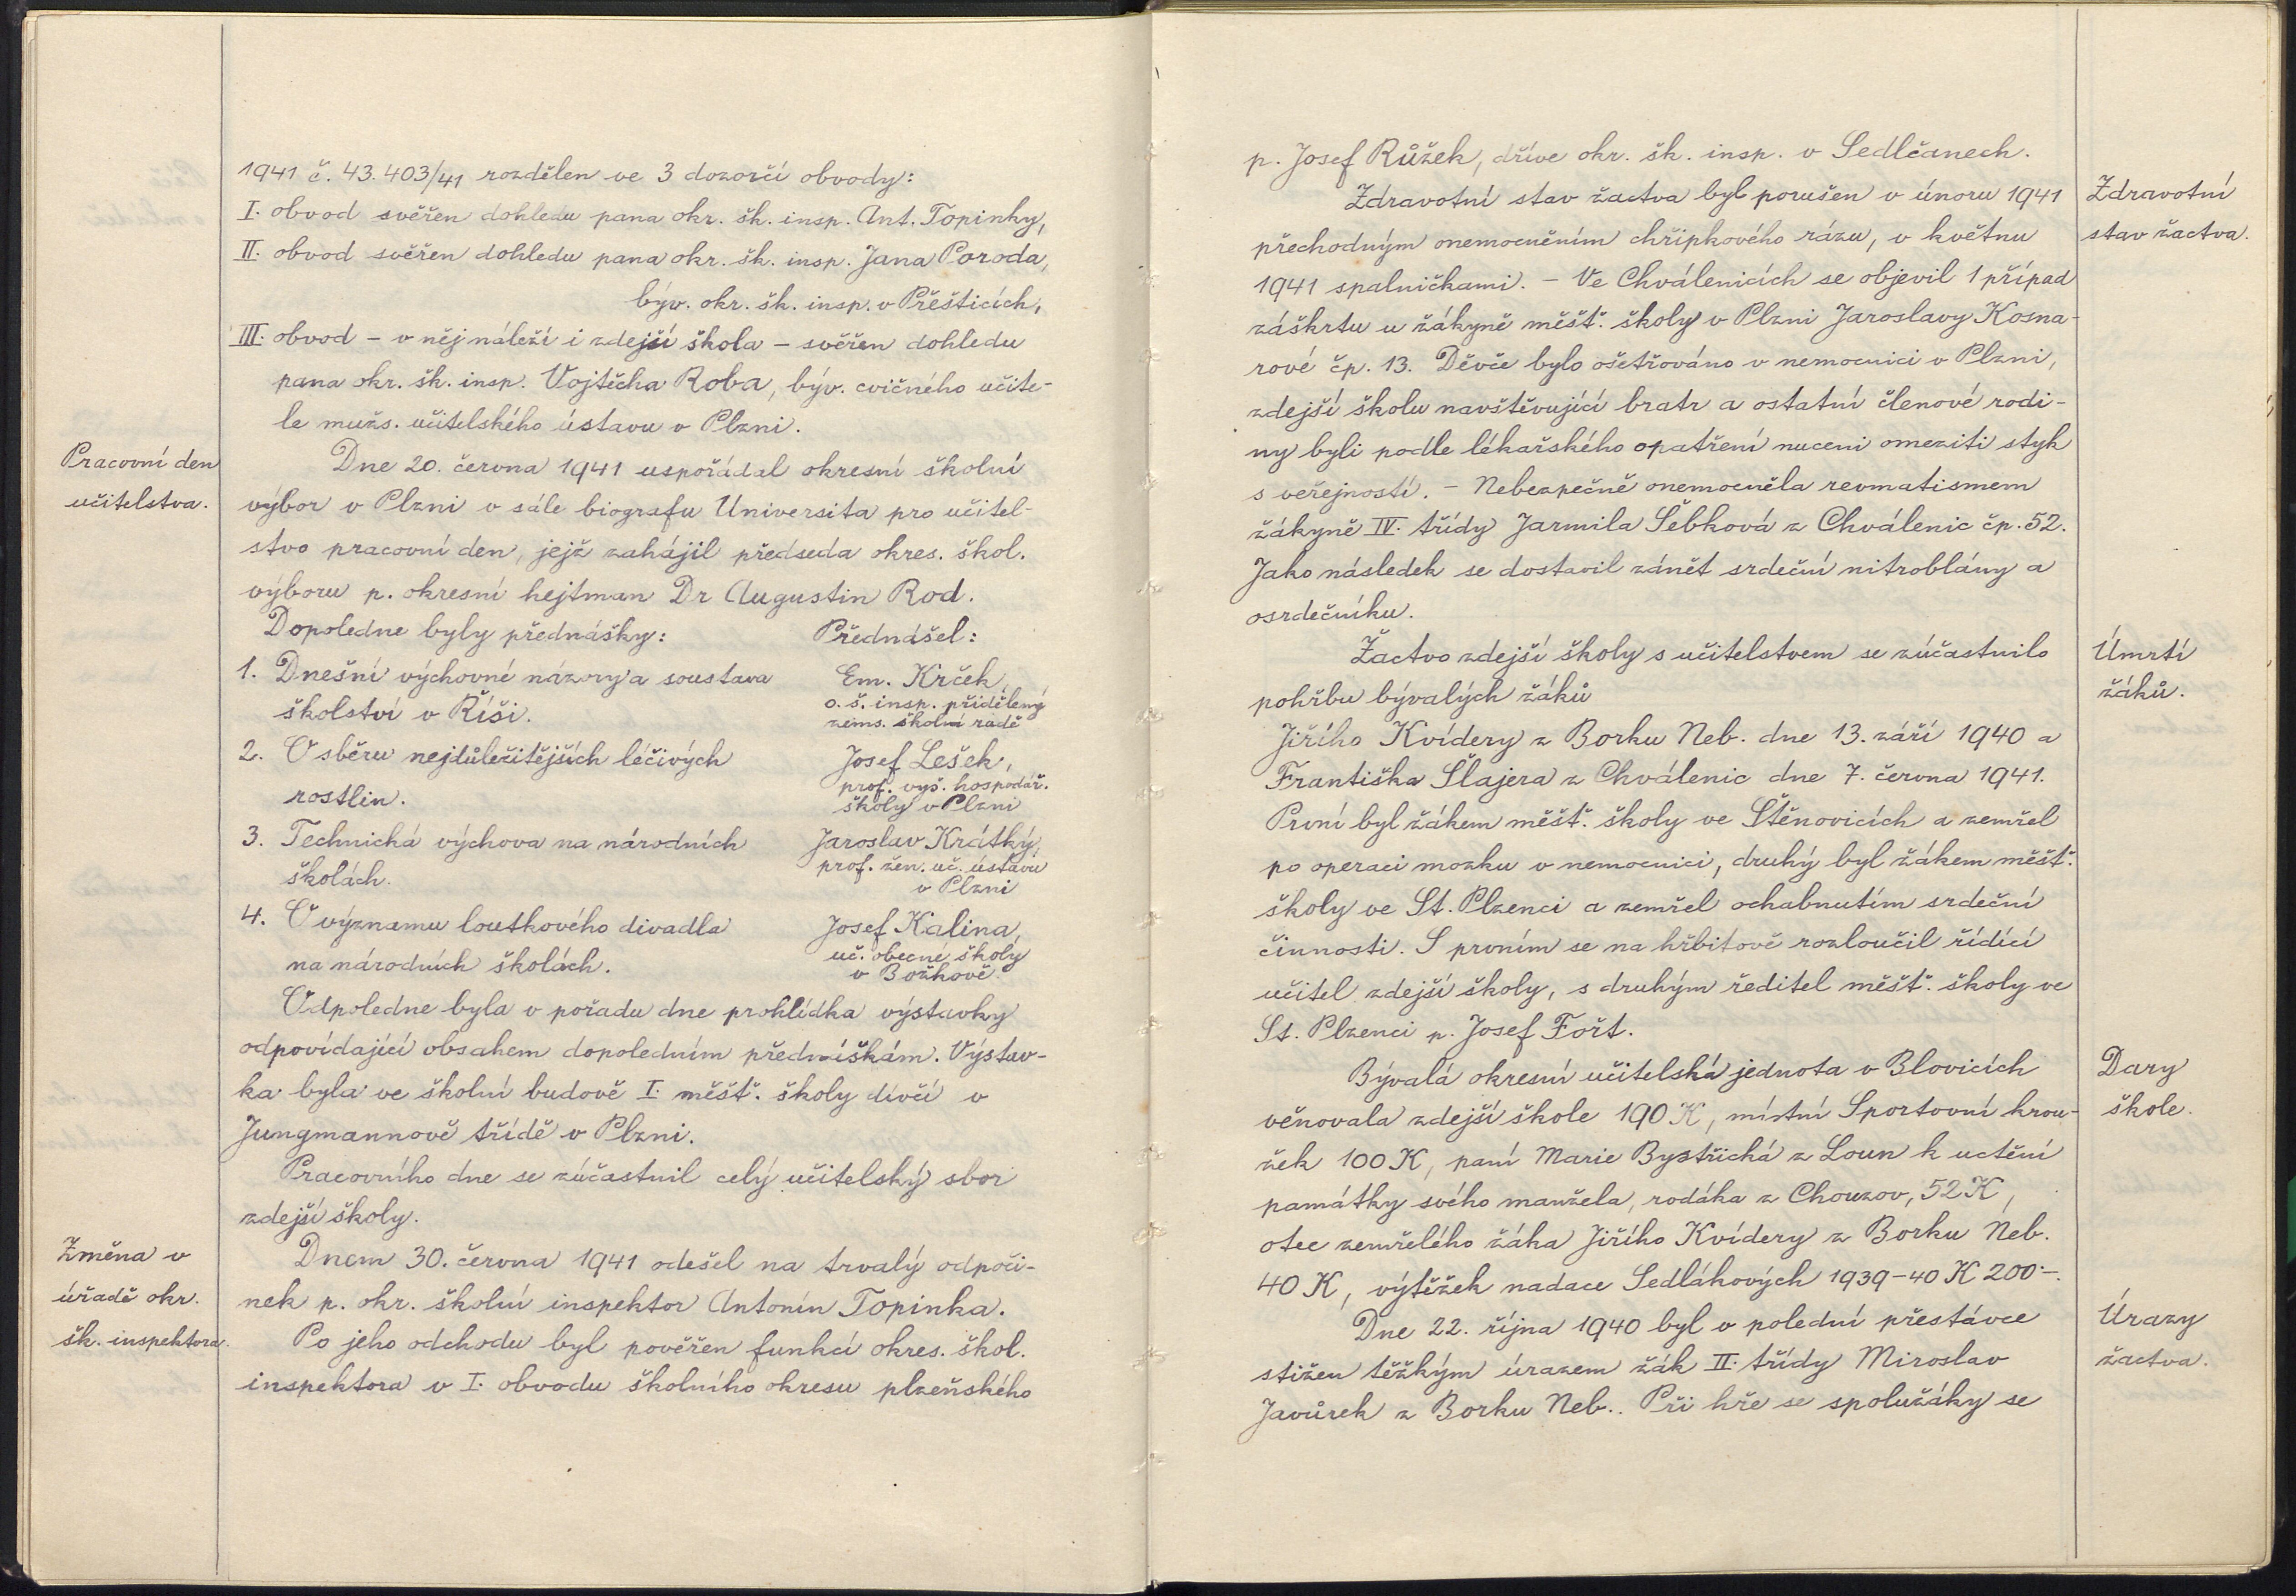 1941 č. 43.403/41 rozdělen ve 3 dozorčí obvody:
I. obvod svěřen dohledu pana okr. šk. insp. Ant. Topinky,
II. obvod svěřen dohledu pana okr. šk. insp. Jana Poroda,
býv. okr. šk. insp. v Přešticích,
III. obvod – v něj náleží i zdejší škola – svěřen dohledu
pana okr. šk. insp. Vojtěcha Roba, býv. cvičného učite-
le mužs. učitelského ústavu v Plzni.
Pracovní den
učitelstva.
Dne 20. června 1941 uspořádal okresní školní
výbor v Plzni v sále biografu Universita pro učitel-
stvo pracovní den, jejž zahájil předseda okres. škol.
výboru p. okresní hejtman Dr Augustin Rod.
Dopoledne byly přednášky: Přednášel:
1. Dnešní výchovné názory a soustava Em. Krček,
školství v Říši. o. š. insp. přidělený
zems. školní radě
2. O sběru nejdůležitějších léčivých Josef Lešek,
rostlin. prof. vyš. hospodář.
školy v Plzni
3. Technická výchova na národních Jaroslav Krátký,
školách. prof. žen. uč. ústavu
v Plzni
4. O významu loutkového divadla Josef Kalina,
na národních školách. uč. obecné školy
v Božkově
Odpoledne byla v pořadu dne prohlídka výstavky
odpovídající obsahem dopoledním přednáškám. Výstav-
ka byla ve školní budově I. měšť. školy dívčí v
Jungmannově třídě v Plzni.
Pracovního dne se zúčastnil celý učitelský sbor
zdejší školy.
Změna v
úřadě okr.
šk. inspektora.
Dnem 30. června 1941 odešel na trvalý odpoči-
nek p. okr. školní inspektor Antonín Topinka.
Po jeho odchodu byl pověřen funkcí okres. škol.
inspektora v I. obvodu školního okresu plzeňského
p. Josef Růžek, dříve okr. šk. insp. v Sedlčanech.
Zdravotní
stav žactva.
Zdravotní stav žactva byl porušen v únoru 1941
přechodným onemocněním chřipkového rázu, v květnu
1941 spalničkami. – Ve Chválenicích se objevil 1 případ
záškrtu u žákyně měšť. školy v Plzni Jaroslavy Kosna-
rové čp. 13. Děvče bylo ošetřováno v nemocnici v Plzni,
zdejší školu navštěvující bratr a ostatní členové rodi-
ny byli podle lékařského opatření nuceni omeziti styk
s veřejností. – Nebezpečně onemocněla revmatismem
žákyně IV. třídy Jarmila Šebková z Chválenic čp. 52.
Jako následek se dostavil zánět srdeční nitroblány a
osrdečníku.
Úmrtí
žáků.
Žactvo zdejší školy s učitelstvem se zúčastnilo
pohřbu bývalých žáků
Jiřího Kvídery z Borku Neb. dne 13. září 1940 a
Františka Šlajera z Chválenic dne 7. června 1941.
První byl žákem měšť. školy ve Štěnovicích a zemřel
po operaci mozku v nemocnici, druhý byl žákem měšť.
školy ve St. Plzenci a zemřel ochabnutím srdeční
činnosti. S prvním se na hřbitově rozloučil řídící
učitel zdejší školy, s druhým ředitel měšť. školy ve
St. Plzenci p. Josef Fořt.
Dary
škole.
Bývalá okresní učitelská jednota v Blovicích
věnovala zdejší škole 190 K, místní Sportovní krou-
žek 100 K, paní Marie Bystřická z Loun k uctění
památky svého manžela, rodáka z Chouzov, 52 K,
otec zemřelého žáka Jiřího Kvídery z Borku Neb.
40 K, výtěžek nadace Sedlákových 1939–40 K 200·–.
Úrazy
žactva.
Dne 22. října 1940 byl v polední přestávce
stižen těžkým úrazem žák II. třídy Miroslav
Javůrek z Borku Neb.. Při hře se spolužáky se